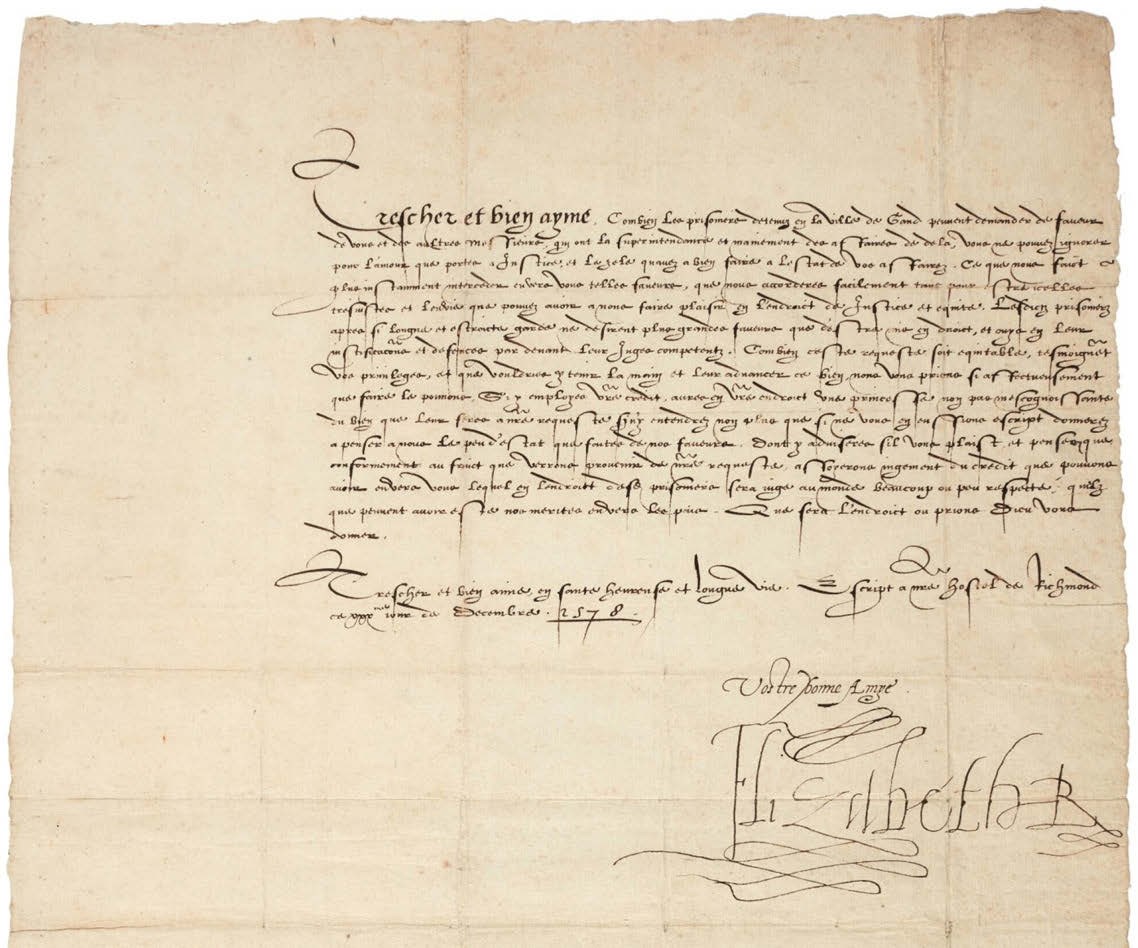 Trescher et bien aymé. Combien les prisoniers detenuz en la ville de Gand peuvent demander de faveur
de vous et des aultres messieurs, qui ont la superintendance et maniement des affaires de dela, vous ne pouvez ignorer
pour l'amour que portes a Justice, et le zele qu'avez a bien faire a l'estat de vos affaires. Ce que nous faict
plus instamment interceder envers vous telles faveurs, que nous accorderes facilement tant pour estre icelles
tresjustes et l'envie que pouvez avoir a nous faire plaisir en l'endroict de Justice et equite. Lesdicts prisoniers
apres si longue et estroicte garde ne desirent plus grandes faveurs que d'estre mis en droict, et ouys en leur
justificacons et defences par devant leur Juges competentz. Combien ceste requeste soit equitable, tesmoignent
vos privileges, et que vouldries y tenir la main et leur advancer ce bien, nous vous prions si affectueusement
que faire le pouvons. Si y employes vre credit, aures en vre endroict une princesse non pas mescognoissante
du bien que leur feres a nre requeste. n'y entendrez non plus que si ne vous en eussions escript donneres
a penser a nous le peu d'estat que faites de nos faveurs. Dont y adviseres s'il vous plaist, et penser que
conformement au fruict que verrons provenir de nre requeste, asseoierons jugement du credit que pouvons
avoir envers vous lequel en l'endroict desd. prisoniers sera juge au monde beaucoup ou peu respecte, qu'ilz
que peuvent avoir este nos merites envers les pais. Que sera l'endroict ou prions Dieu vous
donner.
Trescher et bien aimé, en sante heureuse et longue vie. Escript a nre hostel de Richmond
ce xxx me jour de Decembre. 1578.
Vostre bonne Amye
Elizabeth R